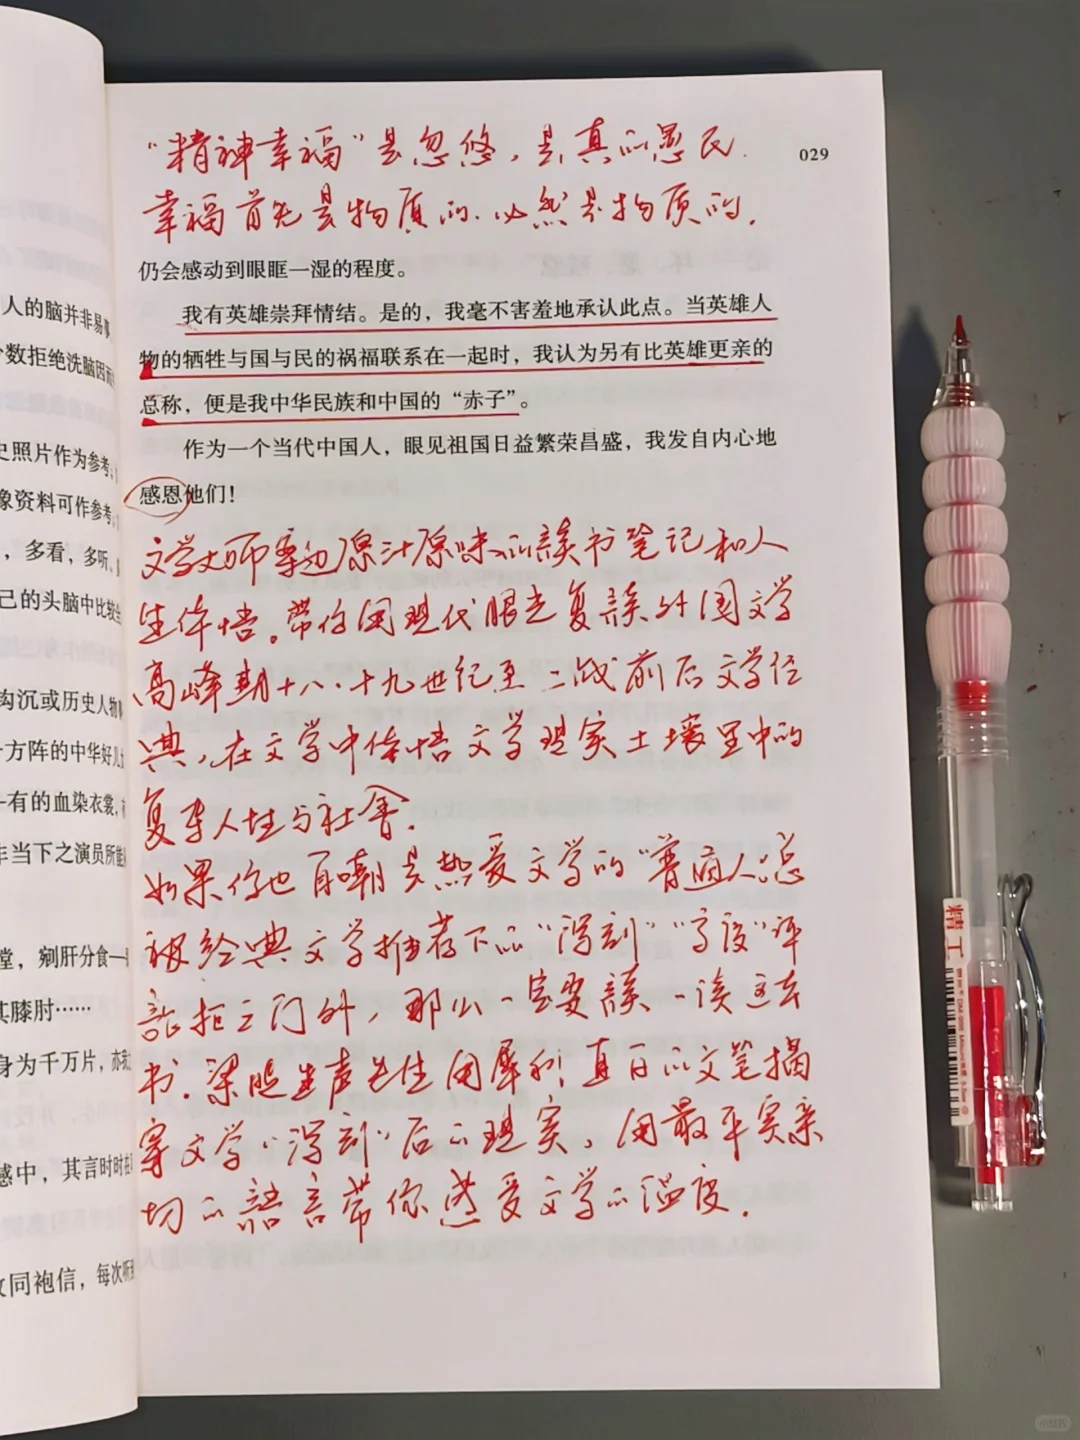 人的脑并非易事
少数拒绝洗脑因而
史照片作为参考；
像资料可作参考；
，多看，多听、
己的头脑中比较
钩沉或历史人物事
一方阵的中华好儿
一有的血染衣裳，
非当下之演员所能
堂，剜肝分食一
其膝肘……
身为千万片，亦我
感中，其言时时在
文同袍信，每次听
029
“精神幸福”是忽悠，是真的愚民.
幸福首先是物质的.必然是物质的.
仍会感动到眼眶一湿的程度。
我有英雄崇拜情结。是的，我毫不害羞地承认此点。当英雄人
物的牺牲与国与民的祸福联系在一起时，我认为另有比英雄更亲的
总称，便是我中华民族和中国的“赤子”。
作为一个当代中国人，眼见祖国日益繁荣昌盛，我发自内心地
感恩他们！
文学大师率边原汁原味的读书笔记和人
生体悟。带你用现代眼光复读外国文学
高峰期十八、十九世纪至二战前后文学经
典，在文学中体悟文学现实土壤里中的
复杂人性与社会.
如果你也自嘲是热爱文学的“普通人”总
被经典文学推荐下的“深刻”“高度”评
论拒之门外，那么一定要读一读这本
书.梁晓生声先生用犀利直白的文笔揭
穿文学“深刻”后的现实，用最平实亲
切的语言带你感受文学的温度.
精工
小红书